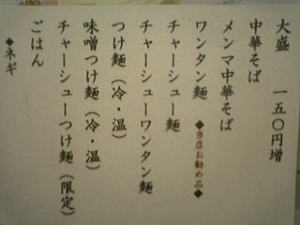 大盛　一五〇円増
中華そば
メンマ中華そば
ワンタン麺　◆当店お勧め品◆
チャーシュー麺
チャーシューワンタン麺
つけ麺（冷・温）
味噌つけ麺（冷・温）
チャーシューつけ麺（限定）
ごはん
◆ネギ